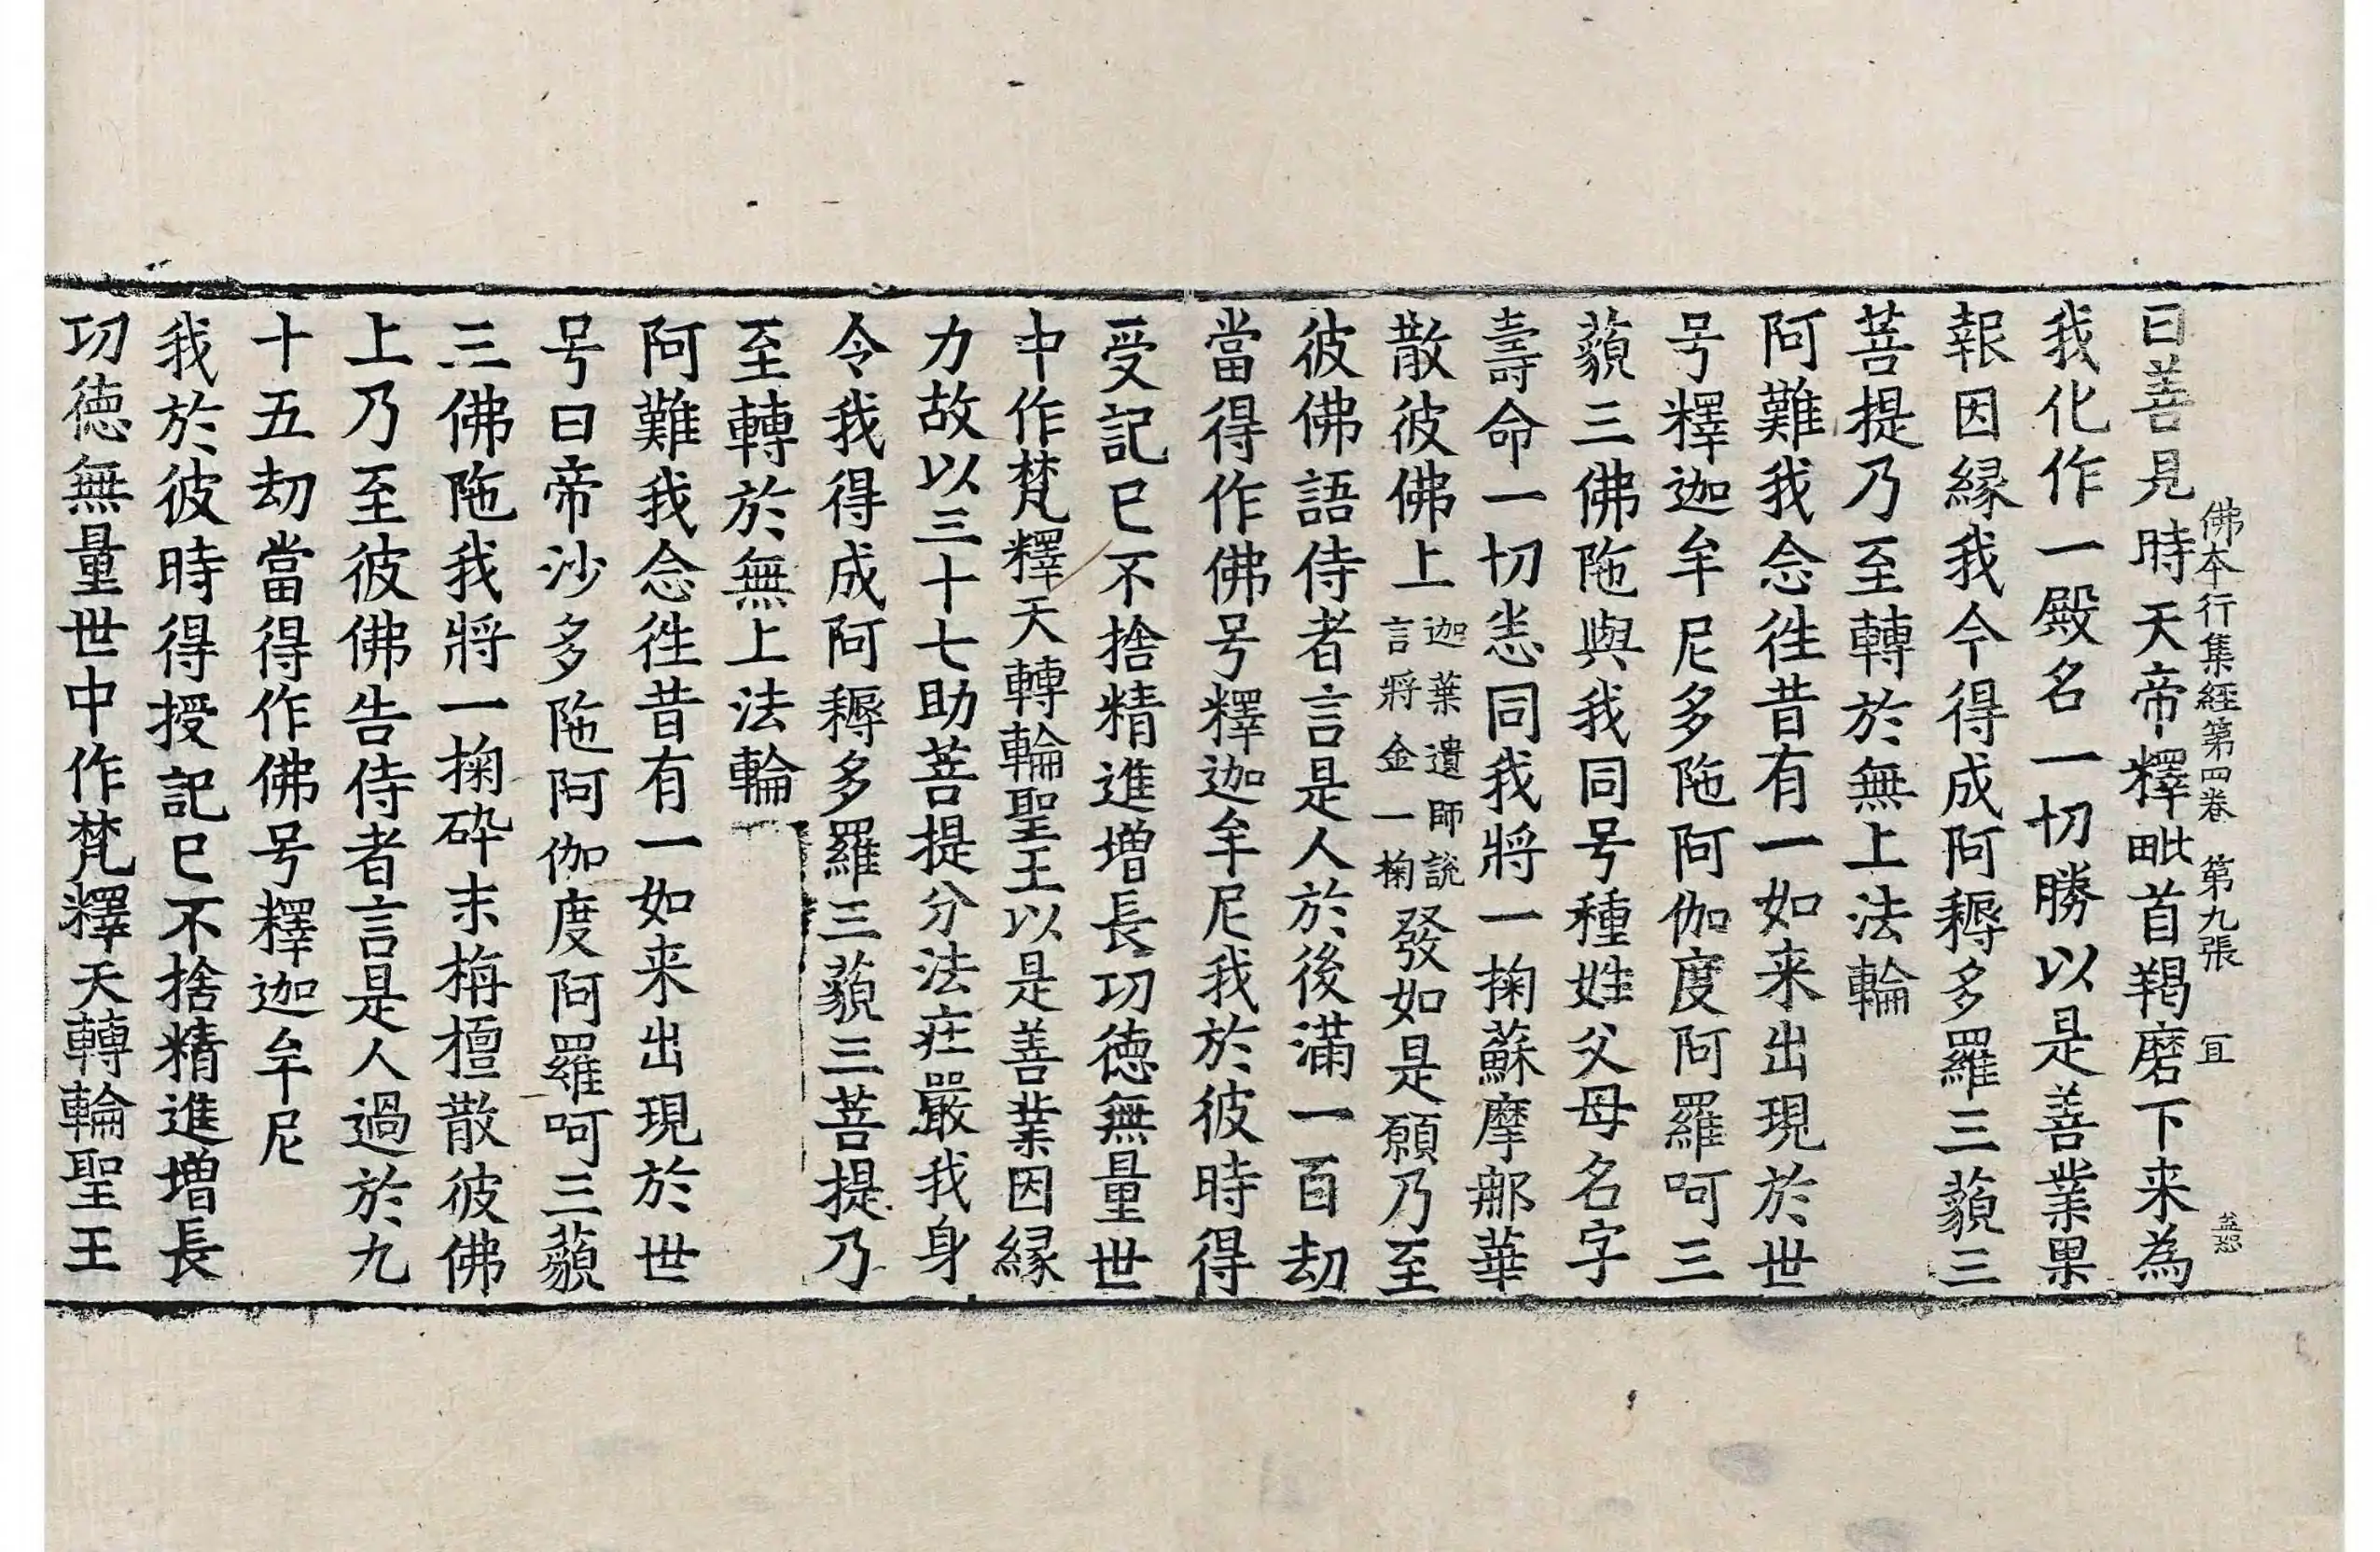 佛本行集經第四卷　第九張　宜
曰善見時天帝釋毗首羯磨下来為
我化作一殿名一切勝以是善業果
報因縁我今得成阿耨多羅三藐三
菩提乃至轉於無上法輪
阿難我念徃昔有一如来出現於世
号釋迦牟尼多陁阿伽度阿羅呵三
藐三佛陁與我同号種姓父母名字
壽命一切恙同我將一掬蘇摩那華
散彼佛上迦葉遺師説言將金一掬發如是願乃至
彼佛語侍者言是人於後滿一百劫
當得作佛号釋迦牟尼我於彼時得
受記已不捨精進增長功徳無量世
中作梵釋天轉輪聖王以是善業因縁
力故以三十七助菩提分法莊嚴我身
令我得成阿耨多羅三藐三菩提乃
至轉於無上法輪
阿難我念徃昔有一如来出現於世
号曰帝沙多陁阿伽度阿羅呵三藐
三佛陁我將一掬碎末栴檀散彼佛
上乃至彼佛告侍者言是人過於九
十五劫當得作佛号釋迦牟尼
我於彼時得授記已不捨精進增長
功徳無量世中作梵釋天轉輪聖王